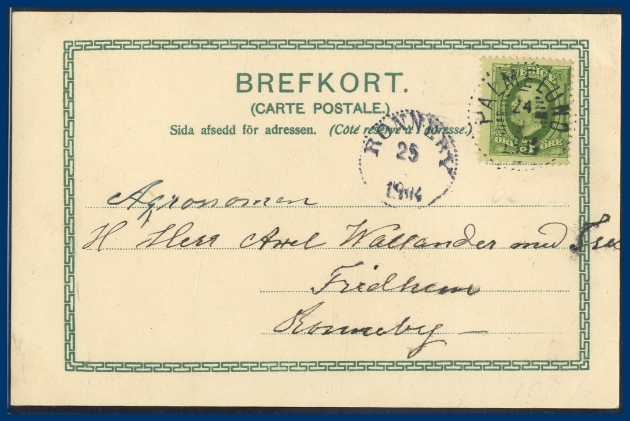 BREFKORT.
(CARTE POSTALE.)
Sida afsedd för adressen. (Côté réservé à l'adresse.)
PÅLMELUND
24
5 ÖRE
RONNEBY
25
1904
Agronomen
H Herr Axel Wallander med Fru
Fridhem
Ronneby